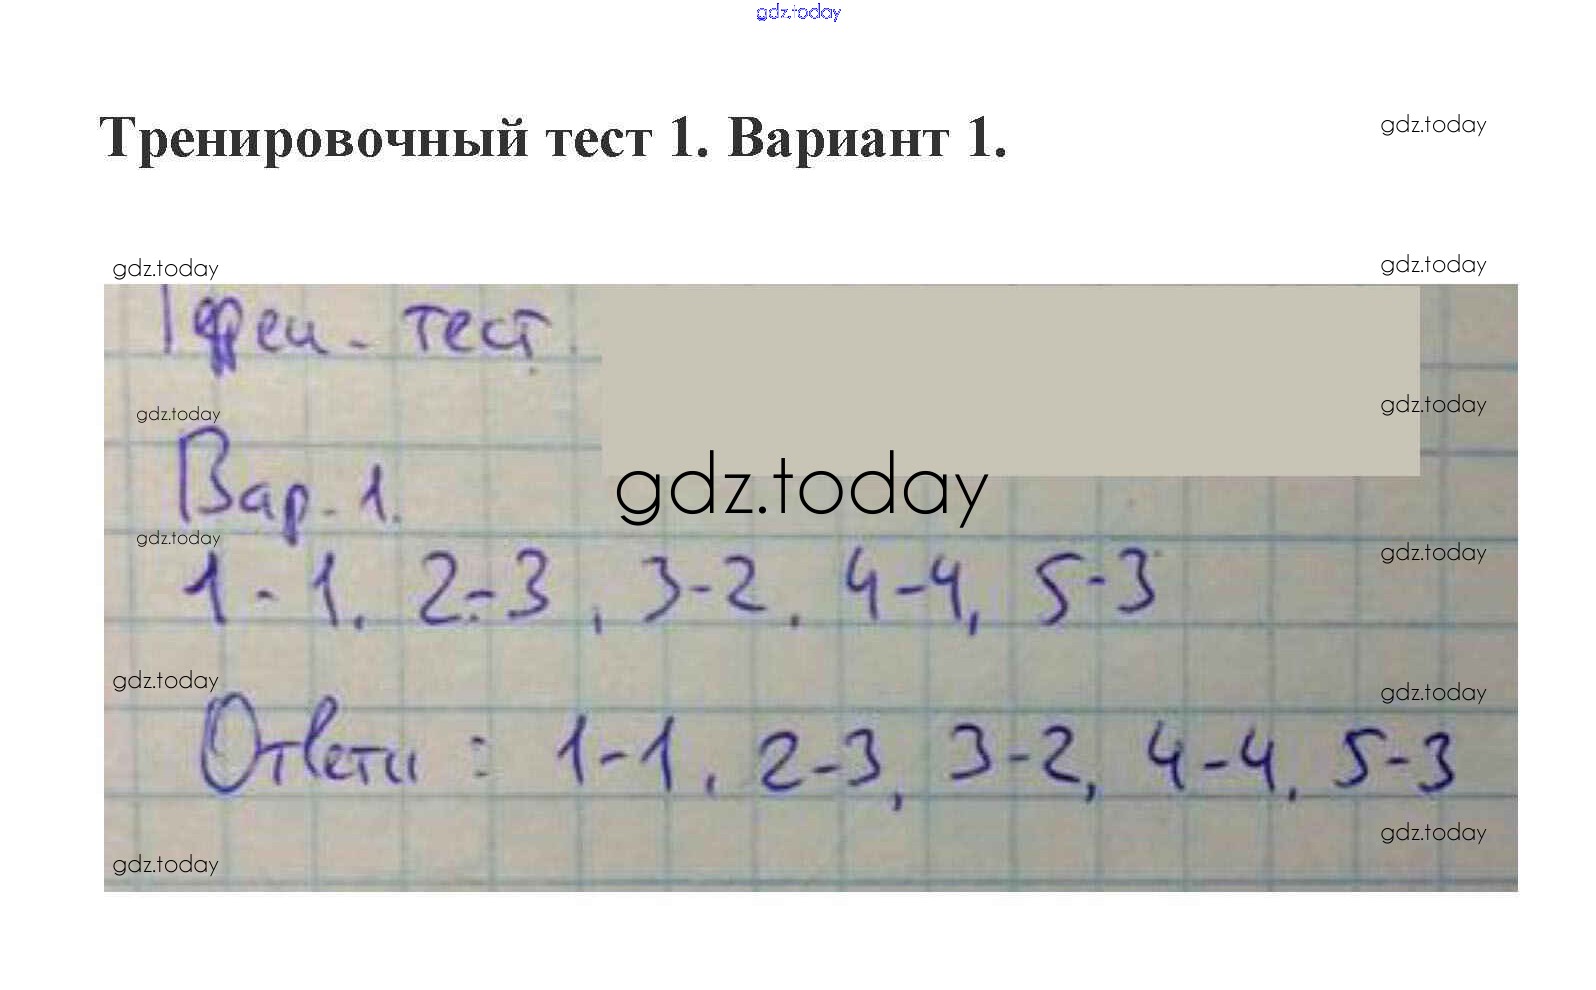 gdz.today
Тренировочный тест 1. Вариант 1.
gdz.today
gdz.today
gdz.today
тест
gdz.today
gdz.today
Вар. 1.
gdz.today
gdz.today
gdz.today
1-1, 2-3, 3-2, 4-4, 5-3
gdz.today
gdz.today
Ответы: 1-1, 2-3, 3-2, 4-4, 5-3
gdz.today
gdz.today